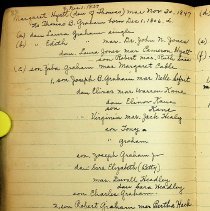 b. 1825
Margaret Hyatt (dau of Thomas) mar Nov 30, 1847
to Thomas B. Graham born Dec 1, 1806. d.
(a) dau Laura Graham single
(b) " Edith " mar. Dr. John N. Jones
dau. Laura Jones mar Cameron Hyatt
son Robert mar. Ruth
(c) son John Graham mar. Margaret Cable
1. son Joseph B. Graham mar Nelle Scott
dau Elinor mar Warren Kane
dau Elinor Kane
son Kane
Virginia mar. Jack Healy
son Tony
" Graham
son Joseph Graham Jr
dau Sara Elizabeth (Betty)
mar. Duvall Headley
dau Sara Headley
son Charles Graham
2. son Robert Graham mar Bertha Hack